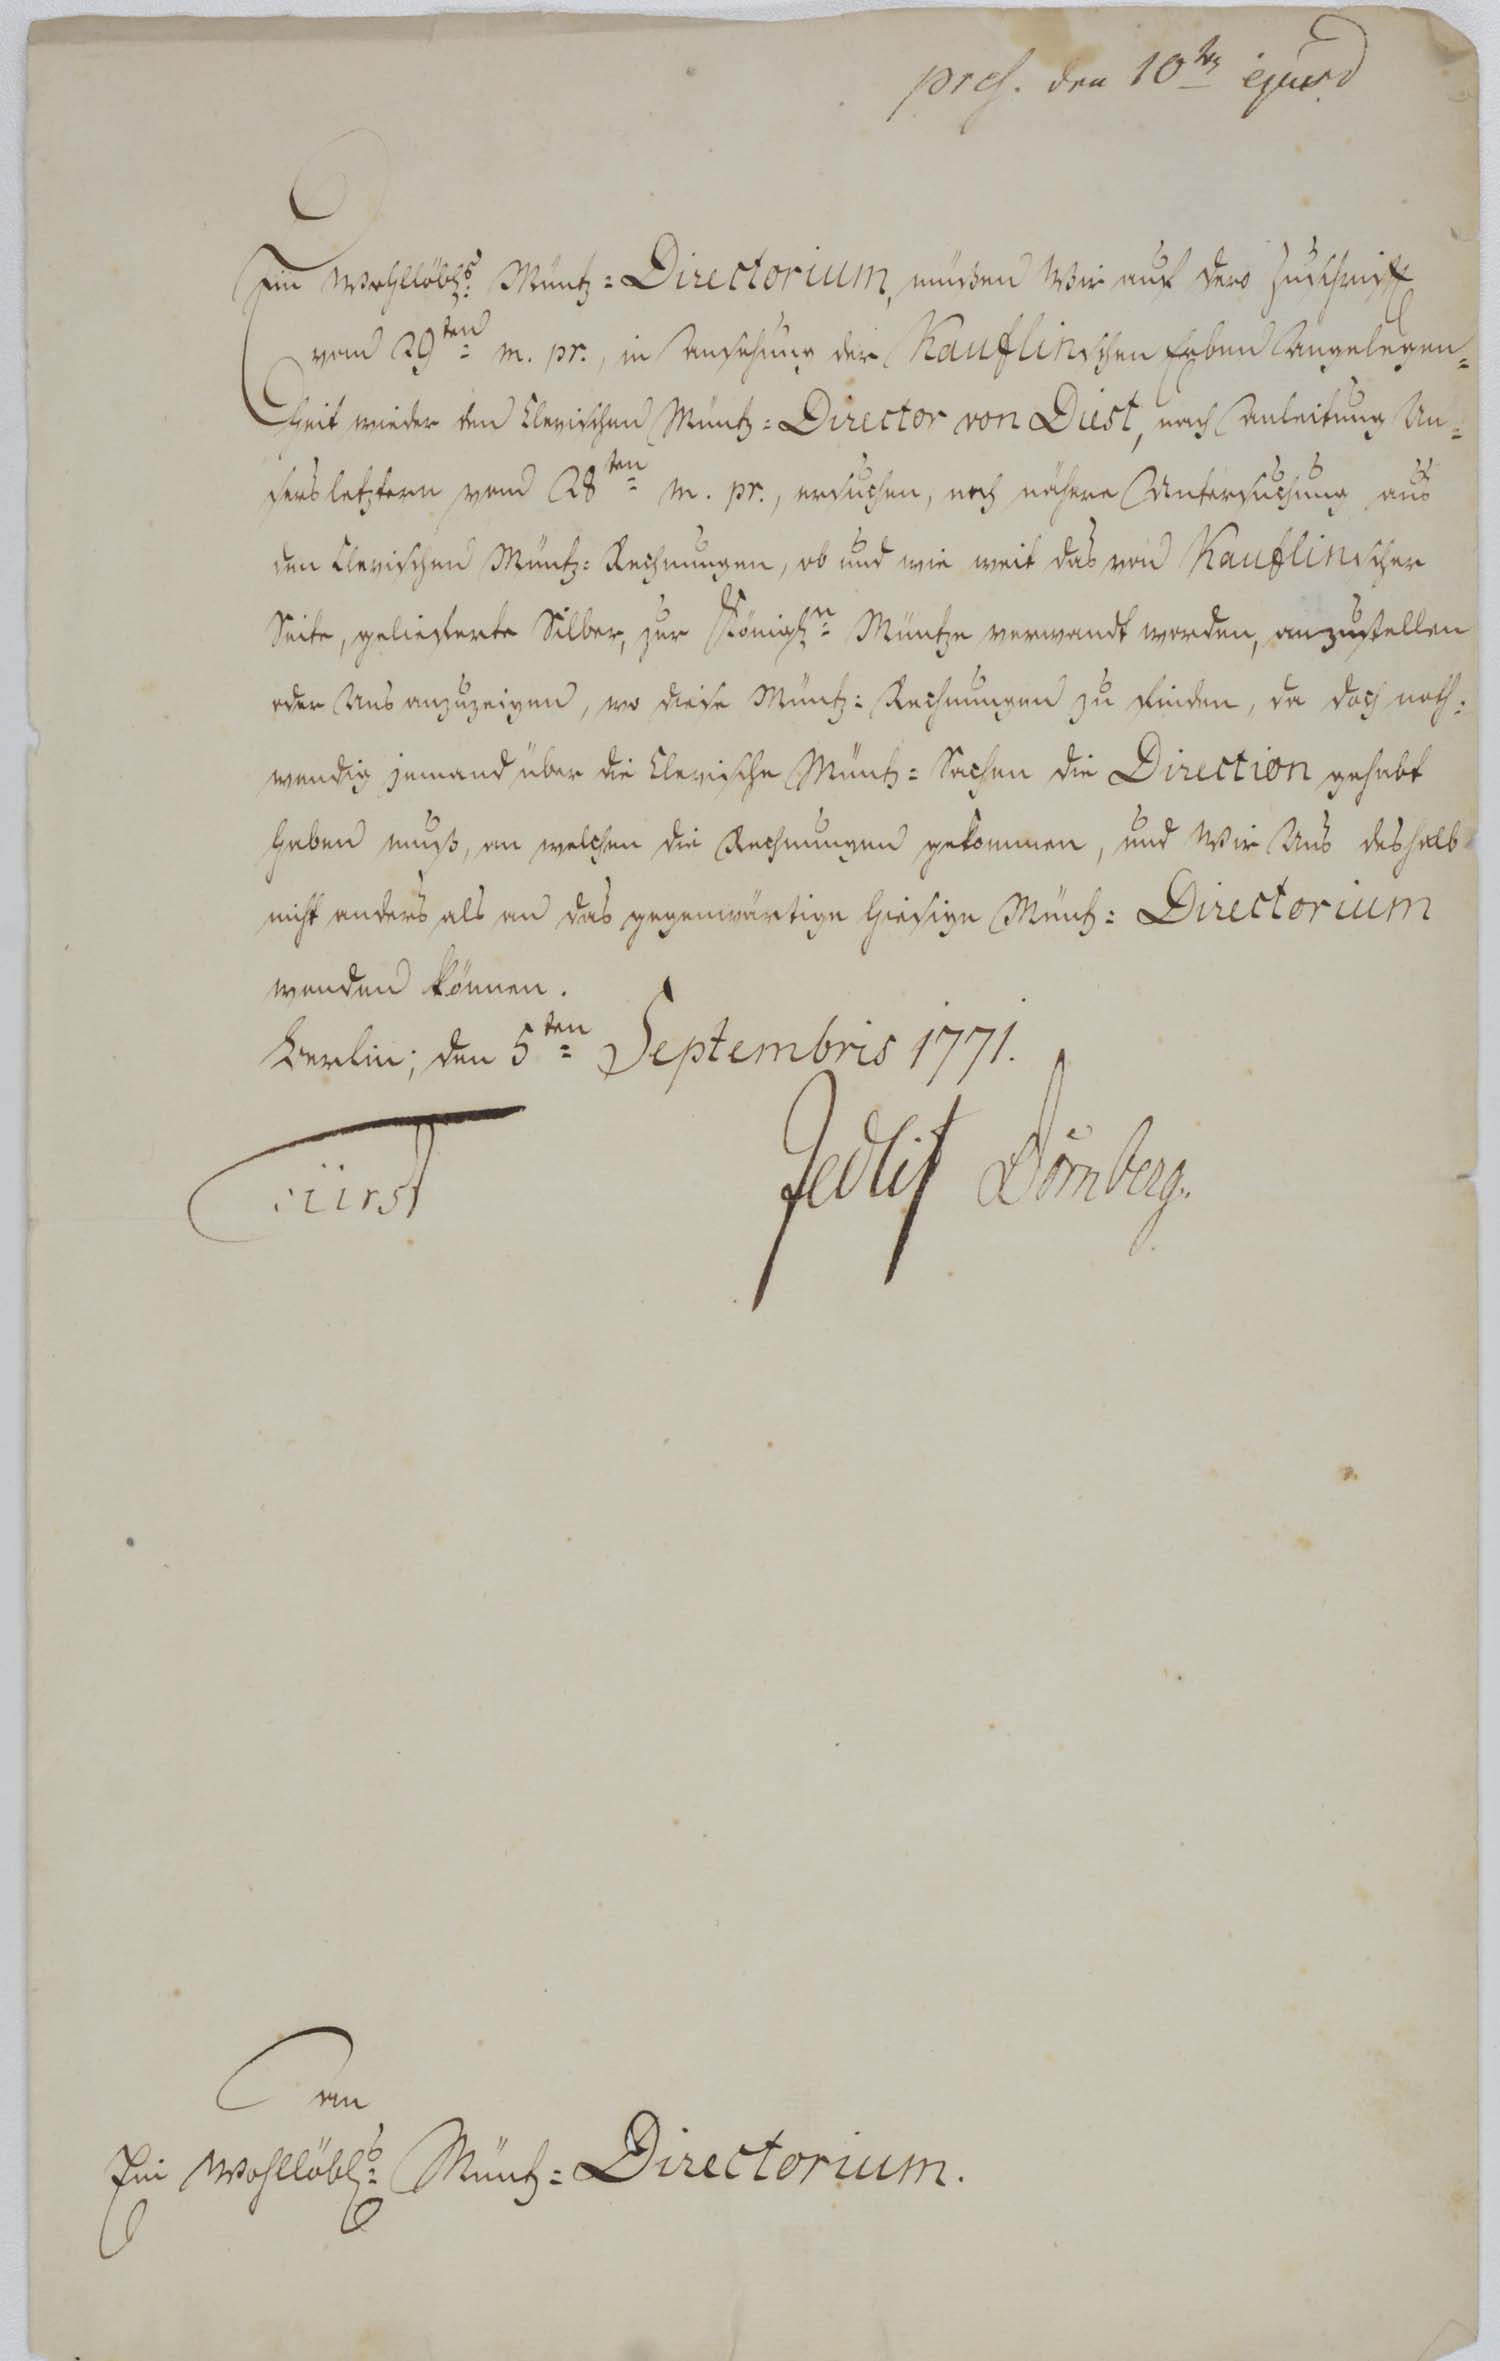 pres. den 10ten ejusd
Ein Wohllöbl.s Müntz=Directorium, müßen Wir auf dero Zuschrifft
vom 29ten m. pr., in Ansehung der Kauflinschen Erben Angelegen=
heit wieder den Clevischen Müntz=Director von Diest, nach Anleitung Un=
sers letztern vom 28ten m. pr., ersuchen, noch nähere Untersuchung aus
den Clevischen Müntz=Rechnungen, ob und wie weit das von Kauflinscher
Seite, gelieferte Silber, zur Königl.n Müntze verwandt worden, anzustellen
oder Uns anzuzeigen, wo diese Müntz=Rechnungen zu finden, da doch noth=
wendig jemand über die Clevische Müntz=Sachen die Direction gehabt
haben muß, an welchen die Rechnungen gekommen, und Wir Uns deshalb
nicht anders als an das gegenwärtige hiesige Müntz=Directorium
wenden können.
Berlin; den 5ten Septembris 1771.
Fürst Zedlitz Dörnberg.
An
Ein Wohllöbl.s Müntz=Directorium.